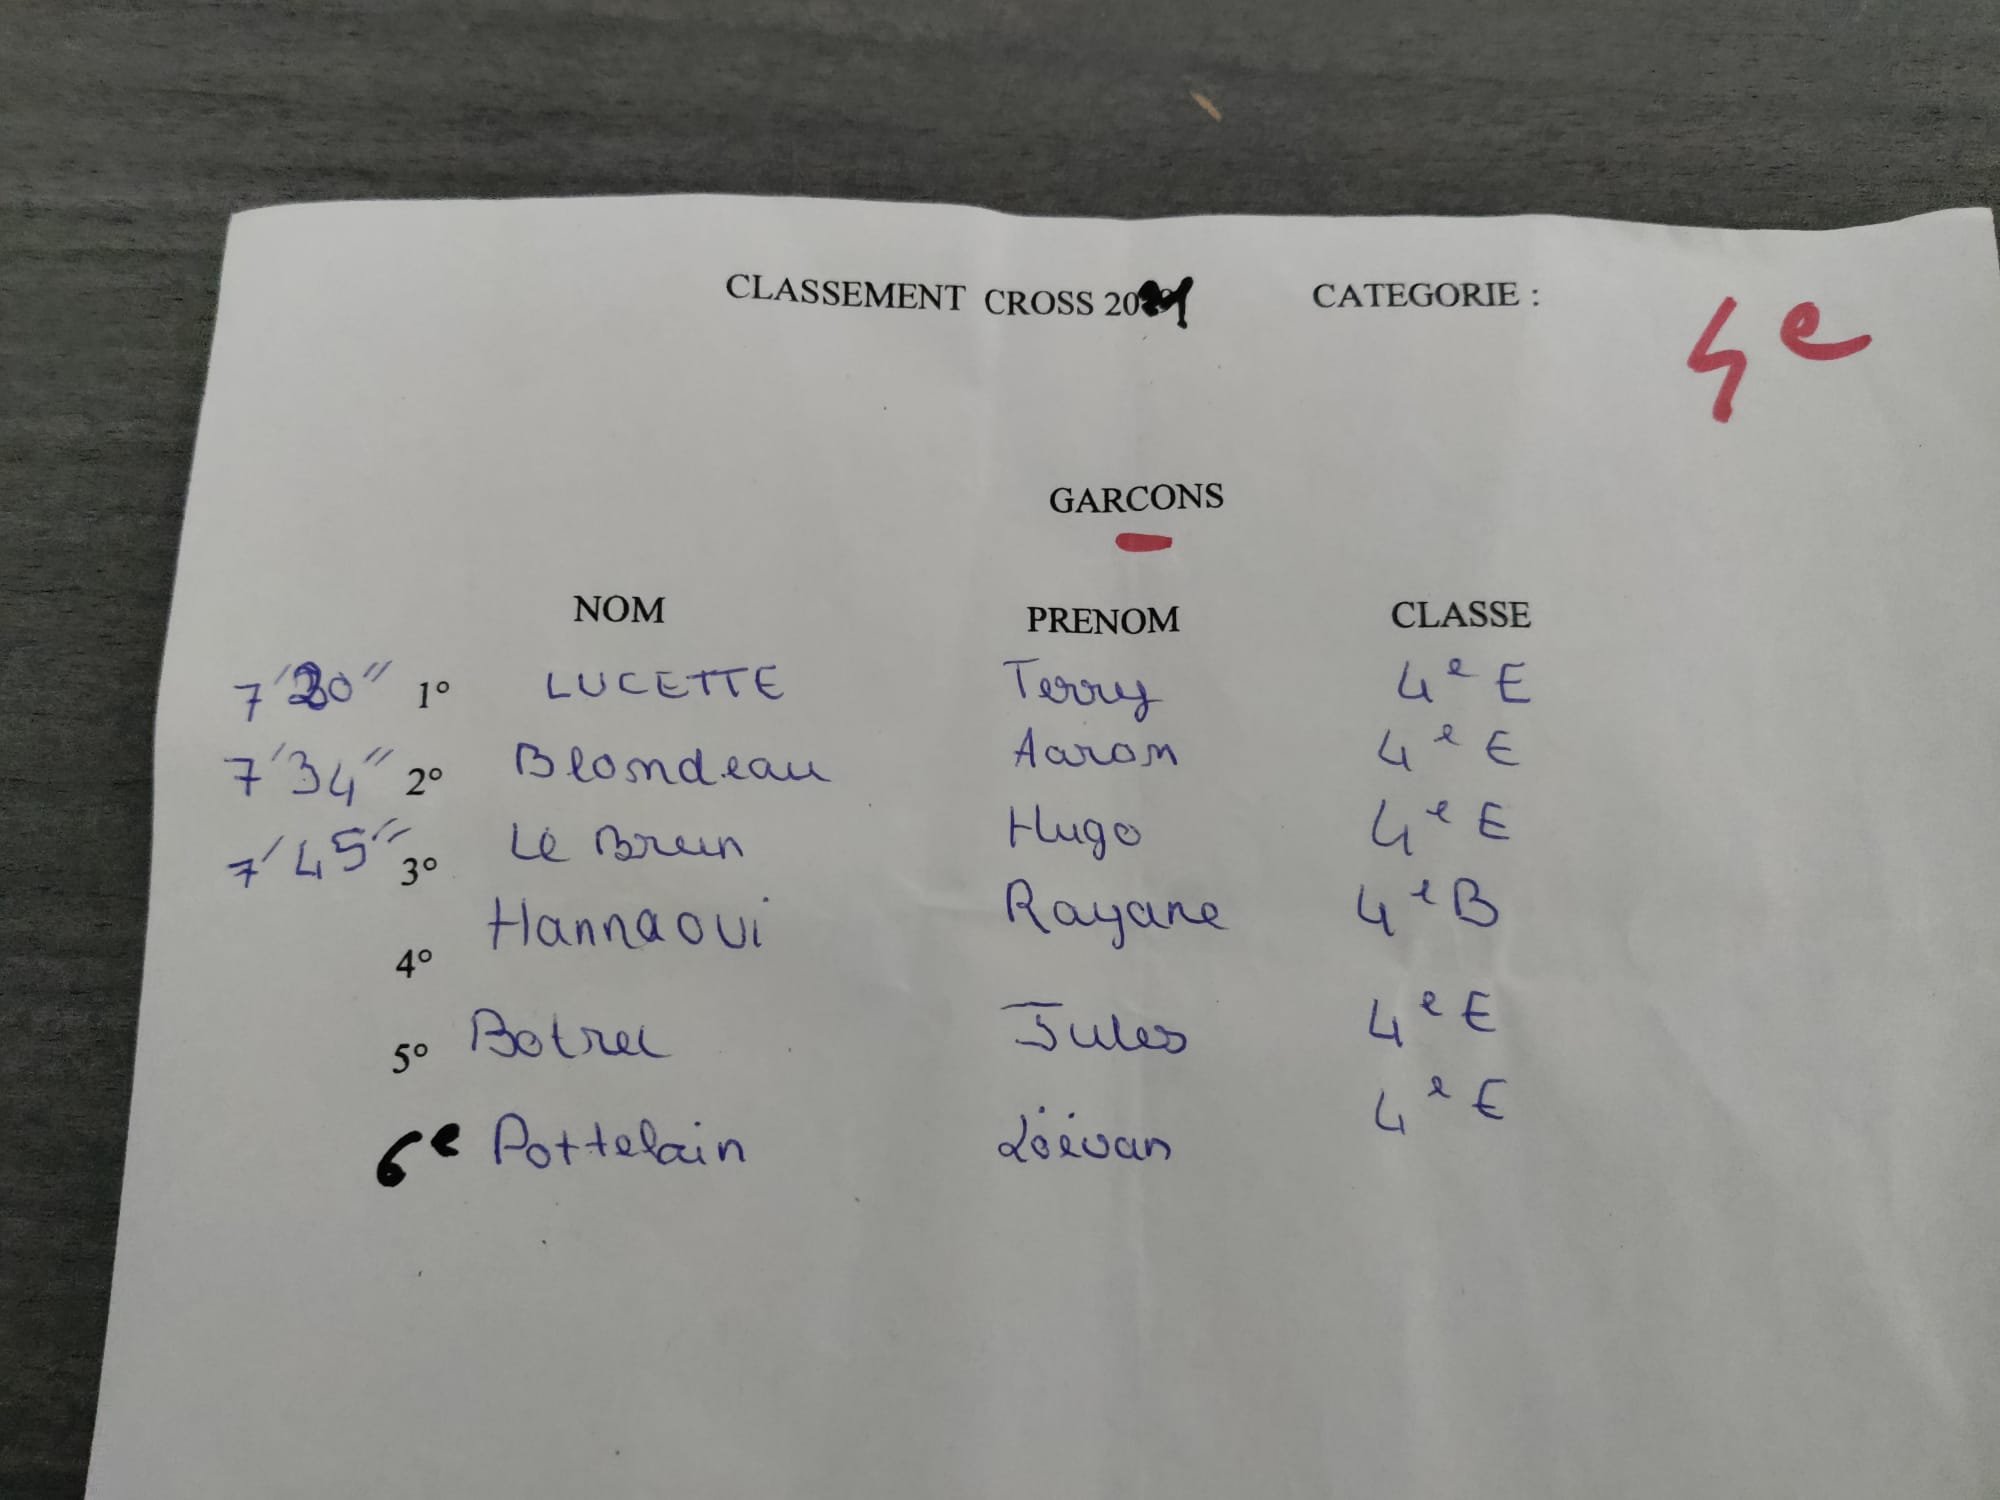 CLASSEMENT CROSS 2021 CATEGORIE : 4e
GARCONS
NOM PRENOM CLASSE
7'20" 1° LUCETTE Terry 4e E
7'34" 2° Blondeau Aaron 4e E
7'45" 3° Le Brun Hugo 4e E
4° Hannaoui Rayane 4e B
5° Botrel Jules 4e E
6e Pottelain Loëvan 4e E